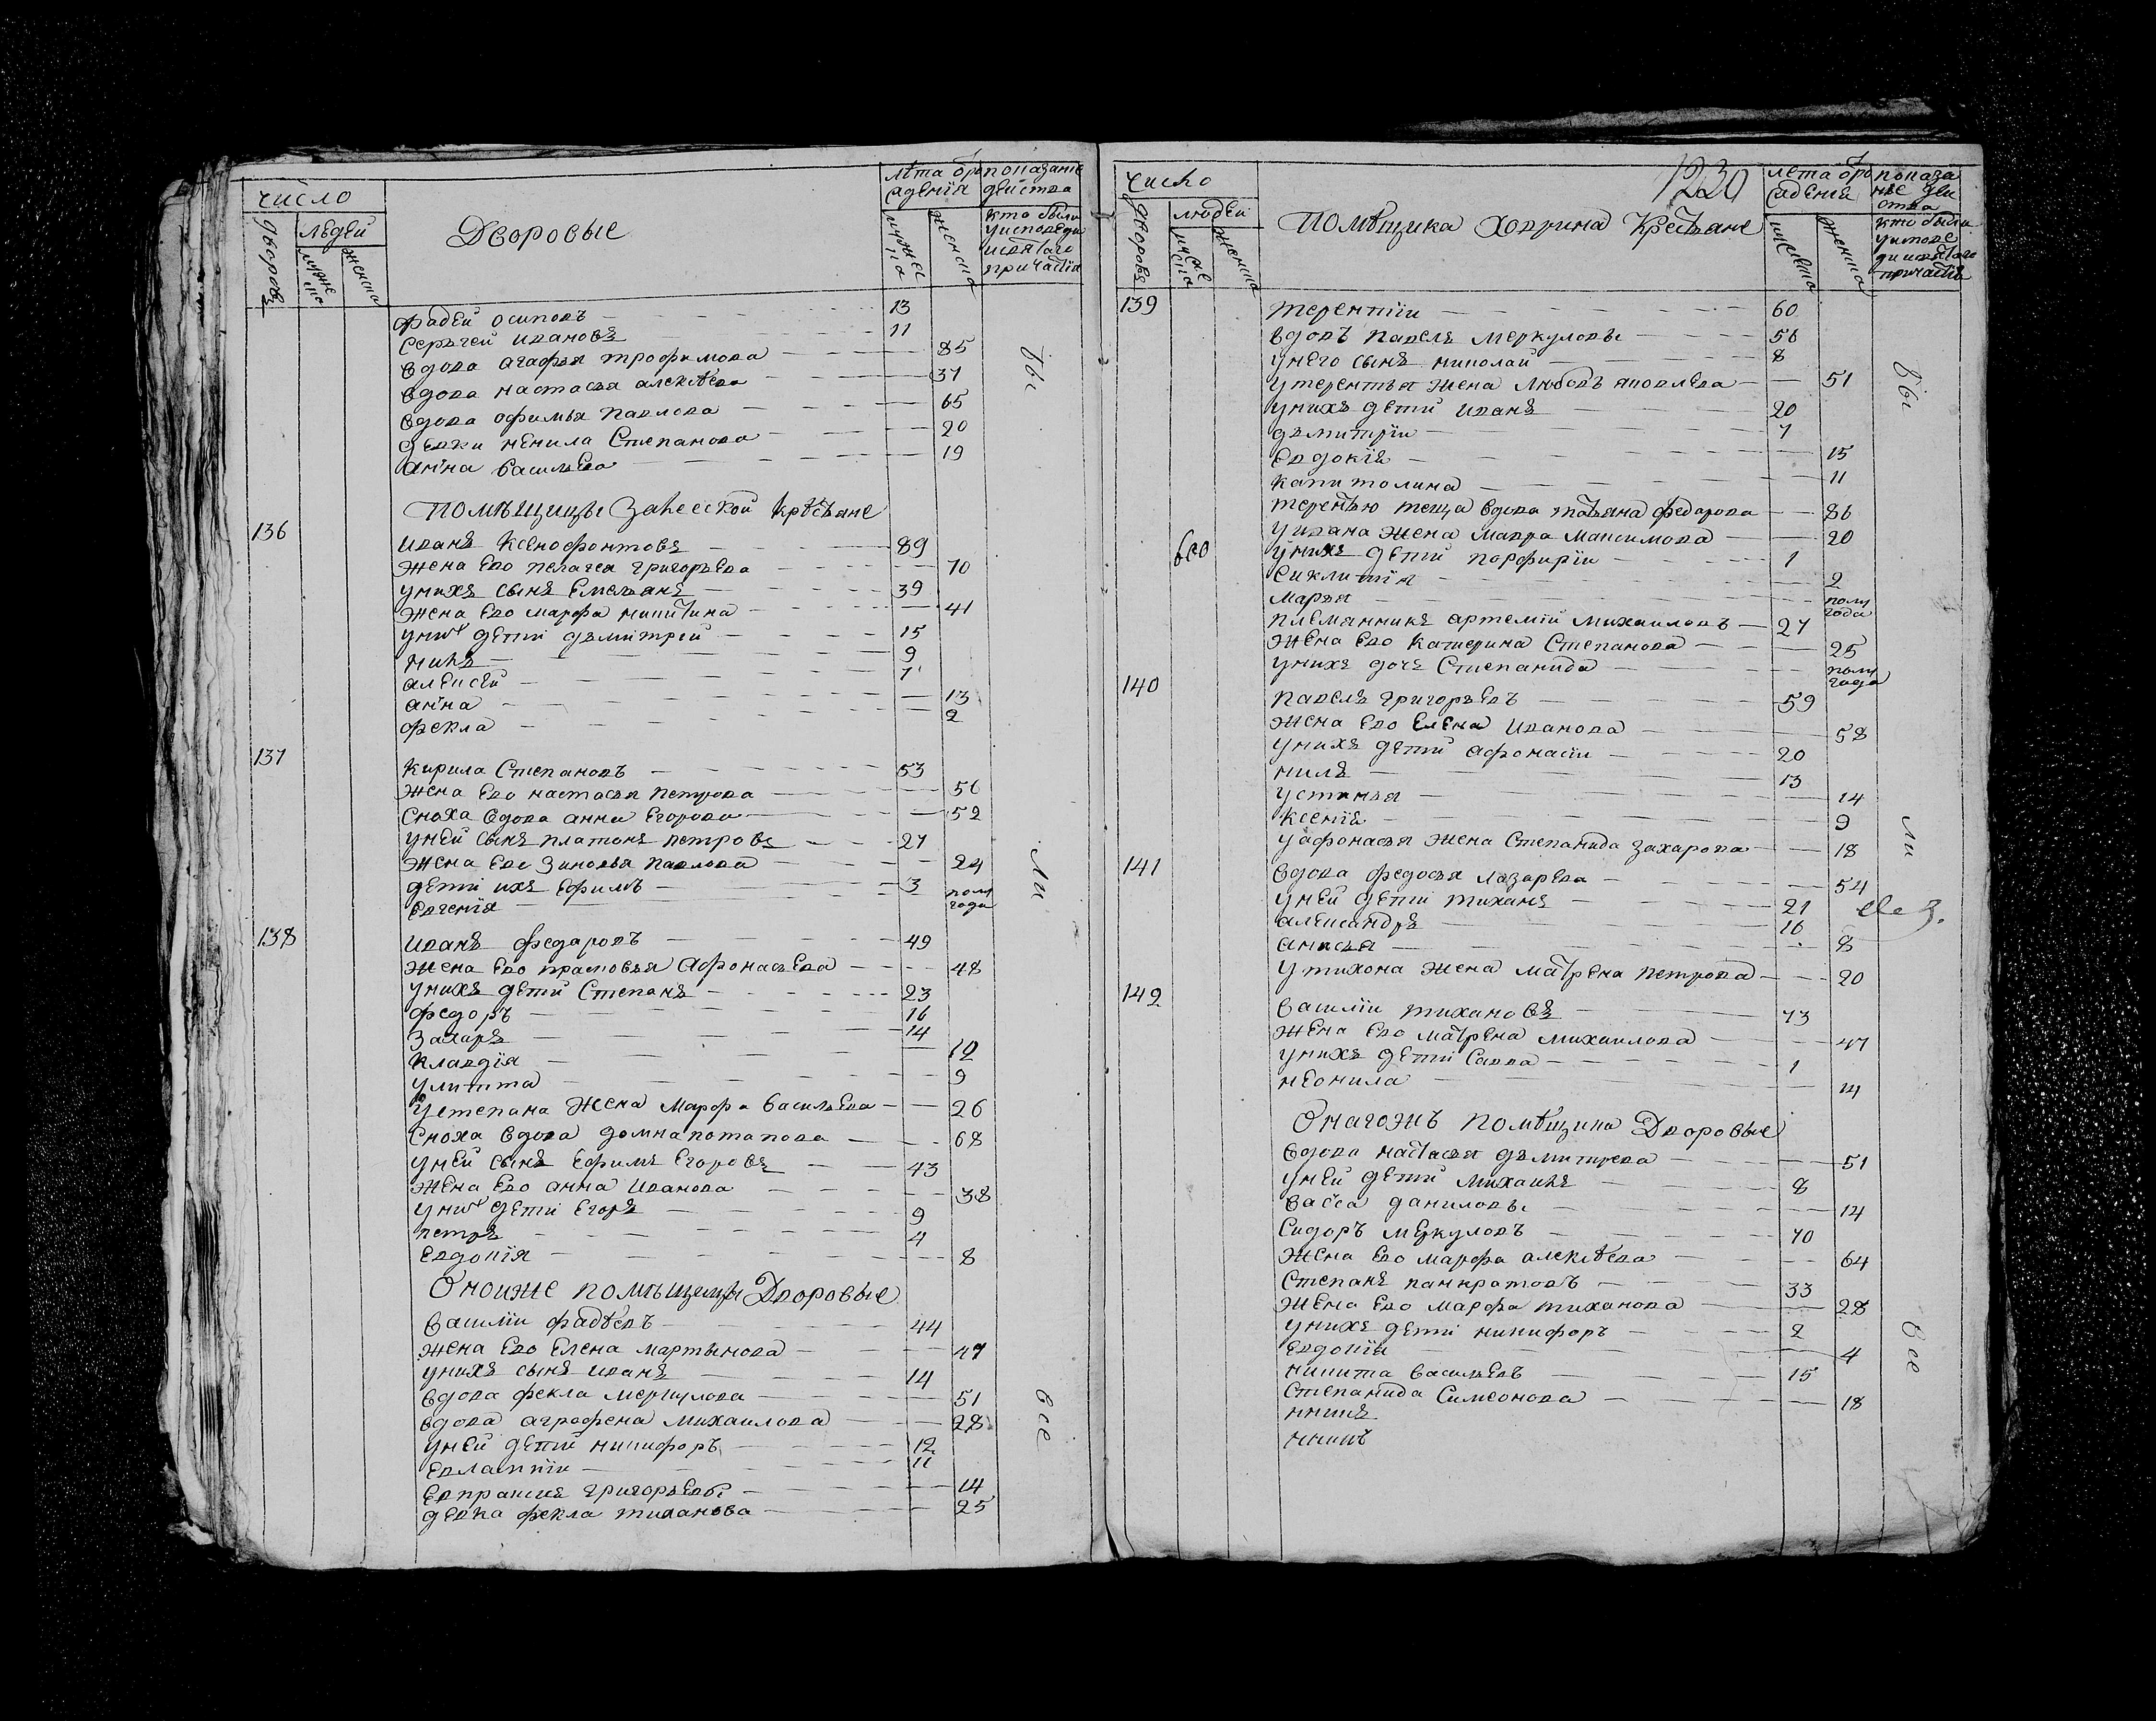 число
дворовъ
людей
мужеска
женска
Дворовые
лѣта отъ рожденія
мужеска
женска
показаніе действа
кто были у исповеди и святаго причастія
Фадей осиповъ — 13
Сергей ивановъ — 11
вдова агафья трофимова — 85
вдова настасья алексѣева — 37
вдова офимья павлова — 65
девки ненила Степанова — 20
анна васильева — 19
бы
помѣщицы крѣстьяне
136 иванъ Ксенофонтовъ — 89
жена Ево пелагея григорьева — 70
у нихъ сынъ Емельянъ — 39
жена Ево марфа никитина — 41
у нихъ дети дьмитрей — 15
9
алексей — 7
анна — 13
фекла — 2
137 Кирила Степановъ — 53
жена Ево настасья петрова — 56
Сноха вдова анна Егорова — 52
у ней сынъ платонъ петровъ — 27
жена Ево Зиновья павлова — 24
дети ихъ Ефимъ — 3
Евгенія — полугода
ли
138 иванъ федаровъ — 49
жена Ево прасковья Афонасьева — 48
у нихъ дети Степанъ — 23
федоръ — 16
Захаръ — 14
Клавдія — 12
улитта — 9
у степана жена марфа васильева — 26
Сноха вдова домна потапова — 68
у ней сынъ Ефимъ Егоровъ — 43
жена Ево анна иванова — 38
у нихъ дети Егоръ — 9
петръ — 4
Евдокія — 8
Оной же помѣщицы Дворовые
василіи фадѣевъ — 44
жена Ево Елена мартынова — 47
у нихъ сынъ иванъ — 14
вдова фекла меркулова — 51
вдова аграфена михаилова — 28
у ней дети никифоръ — 12
Евлампіи — 11
Евпраксия григорьева — 14
девка фекла тиханова — 25
все
1230
число
дворовъ
людей
мужеска
женска
помѣщика Ховрина Крестьяне
лета отъ рожденія
мужеска
женска
показаніе действа
кто были у исповеди и святаго причастія
139 терентіи — 60
вдовъ павелъ меркуловъ — 56
у него сынъ николай — 8
у терентья жена любовь яковлева — 51
у нихъ дети иванъ — 20
дьмитріи — 7
Евдокія — 15
капитолина — 11
терентью теща вдова татьяна федарова — 86
у ивана жена мавра максимова — 20
у нихъ дети порфиріи — 1
2
марья — полугода
племянникъ артемій михаиловъ — 27
жена Ево катерина Степанова — 25
у нихъ дочь Степанида — полугода
бы
140 павелъ григорьевъ — 59
жена Ево Елена иванова — 58
у нихъ дети афонасіи — 20
нилъ — 13
устинья — 14
ксенія — 9
у афонасья жена Степанида захарова — 18
ли
141 вдова федосья лазарева — 54
у ней дети тиханъ — 21
александръ — 16
анисья — 8
у тихона жена матрена петрова — 20
142 василіи тихановъ — 43
жена Ево матрена михаилова — 47
у нихъ дети Савва — 1
неонила — 14
Онагожъ помѣщика Дворовые
вдова настасья дьмитрева — 51
у ней дети михаилъ — 8
васса даниловы — 14
Сидоръ меркуловъ — 70
жена Ево марфа алексѣева — 64
Степанъ панкратовъ — 33
жена Ево марфа тиханова — 28
у нихъ дети никифоръ — 2
Евдокіи — 4
никита васильевъ — 15
Степанида Симеонова — 18
все